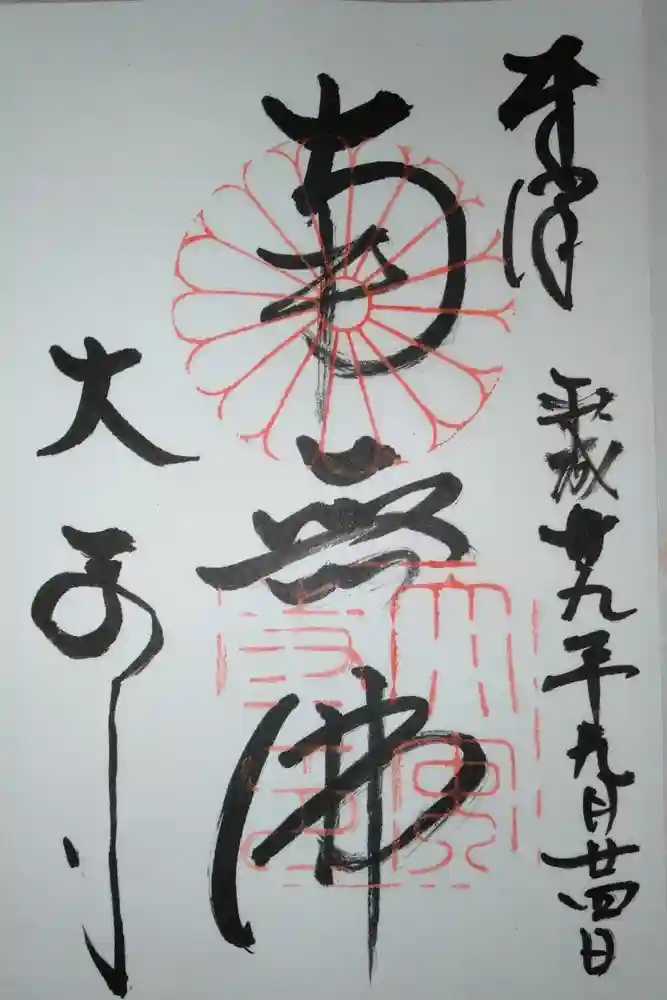 奉拝
平成廿九年九月廿四日
南無佛
大安寺